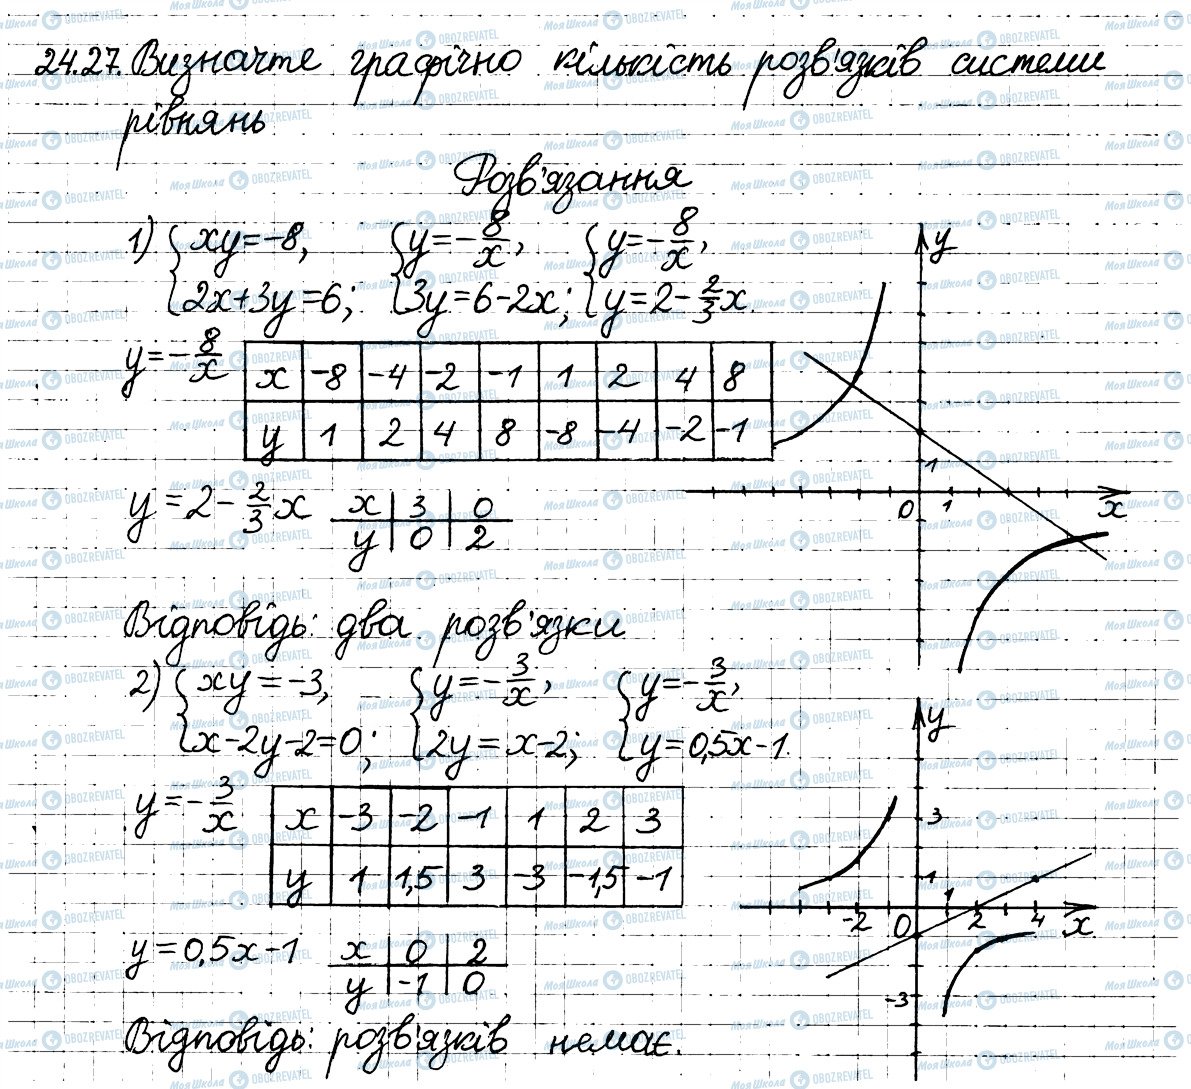 24.27. Визначте графічно кількість розв'язків системи
рівнянь
Розв'язання
1) { xy = -8, { y = -8/x, { y = -8/x,
{ 2x+3y=6; { 3y=6-2x; { y=2-2/3x.
y = -8/x
x -8 -4 -2 -1 1 2 4 8
y 1 2 4 8 -8 -4 -2 -1
y = 2 - 2/3 x
x 3 0
y 0 2
y
1
0 1 x
Відповідь: два розв'язки
2) { xy = -3, { y = -3/x, { y = -3/x,
{ x-2y-2=0; { 2y = x-2; { y=0,5x-1.
y = -3/x
x -3 -2 -1 1 2 3
y 1 1,5 3 -3 -1,5 -1
y = 0,5x-1
x 0 2
y -1 0
y
3
1 1
-2 0 2 4 x
-3
Відповідь: розв'язків немає.
Моя Школа OBOZREVATEL